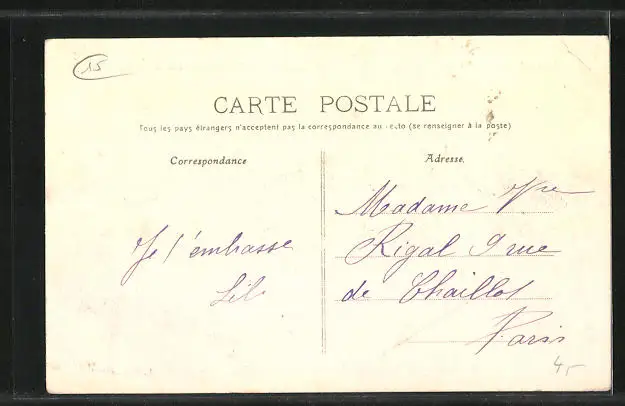 15
CARTE POSTALE
Tous les pays étrangers n'acceptent pas la correspondance au recto (se renseigner à la poste)
Correspondance
Je t'embrasse
Lili
Adresse.
Madame Vve
Rigal 9 rue
de Chaillot
Paris
4,-